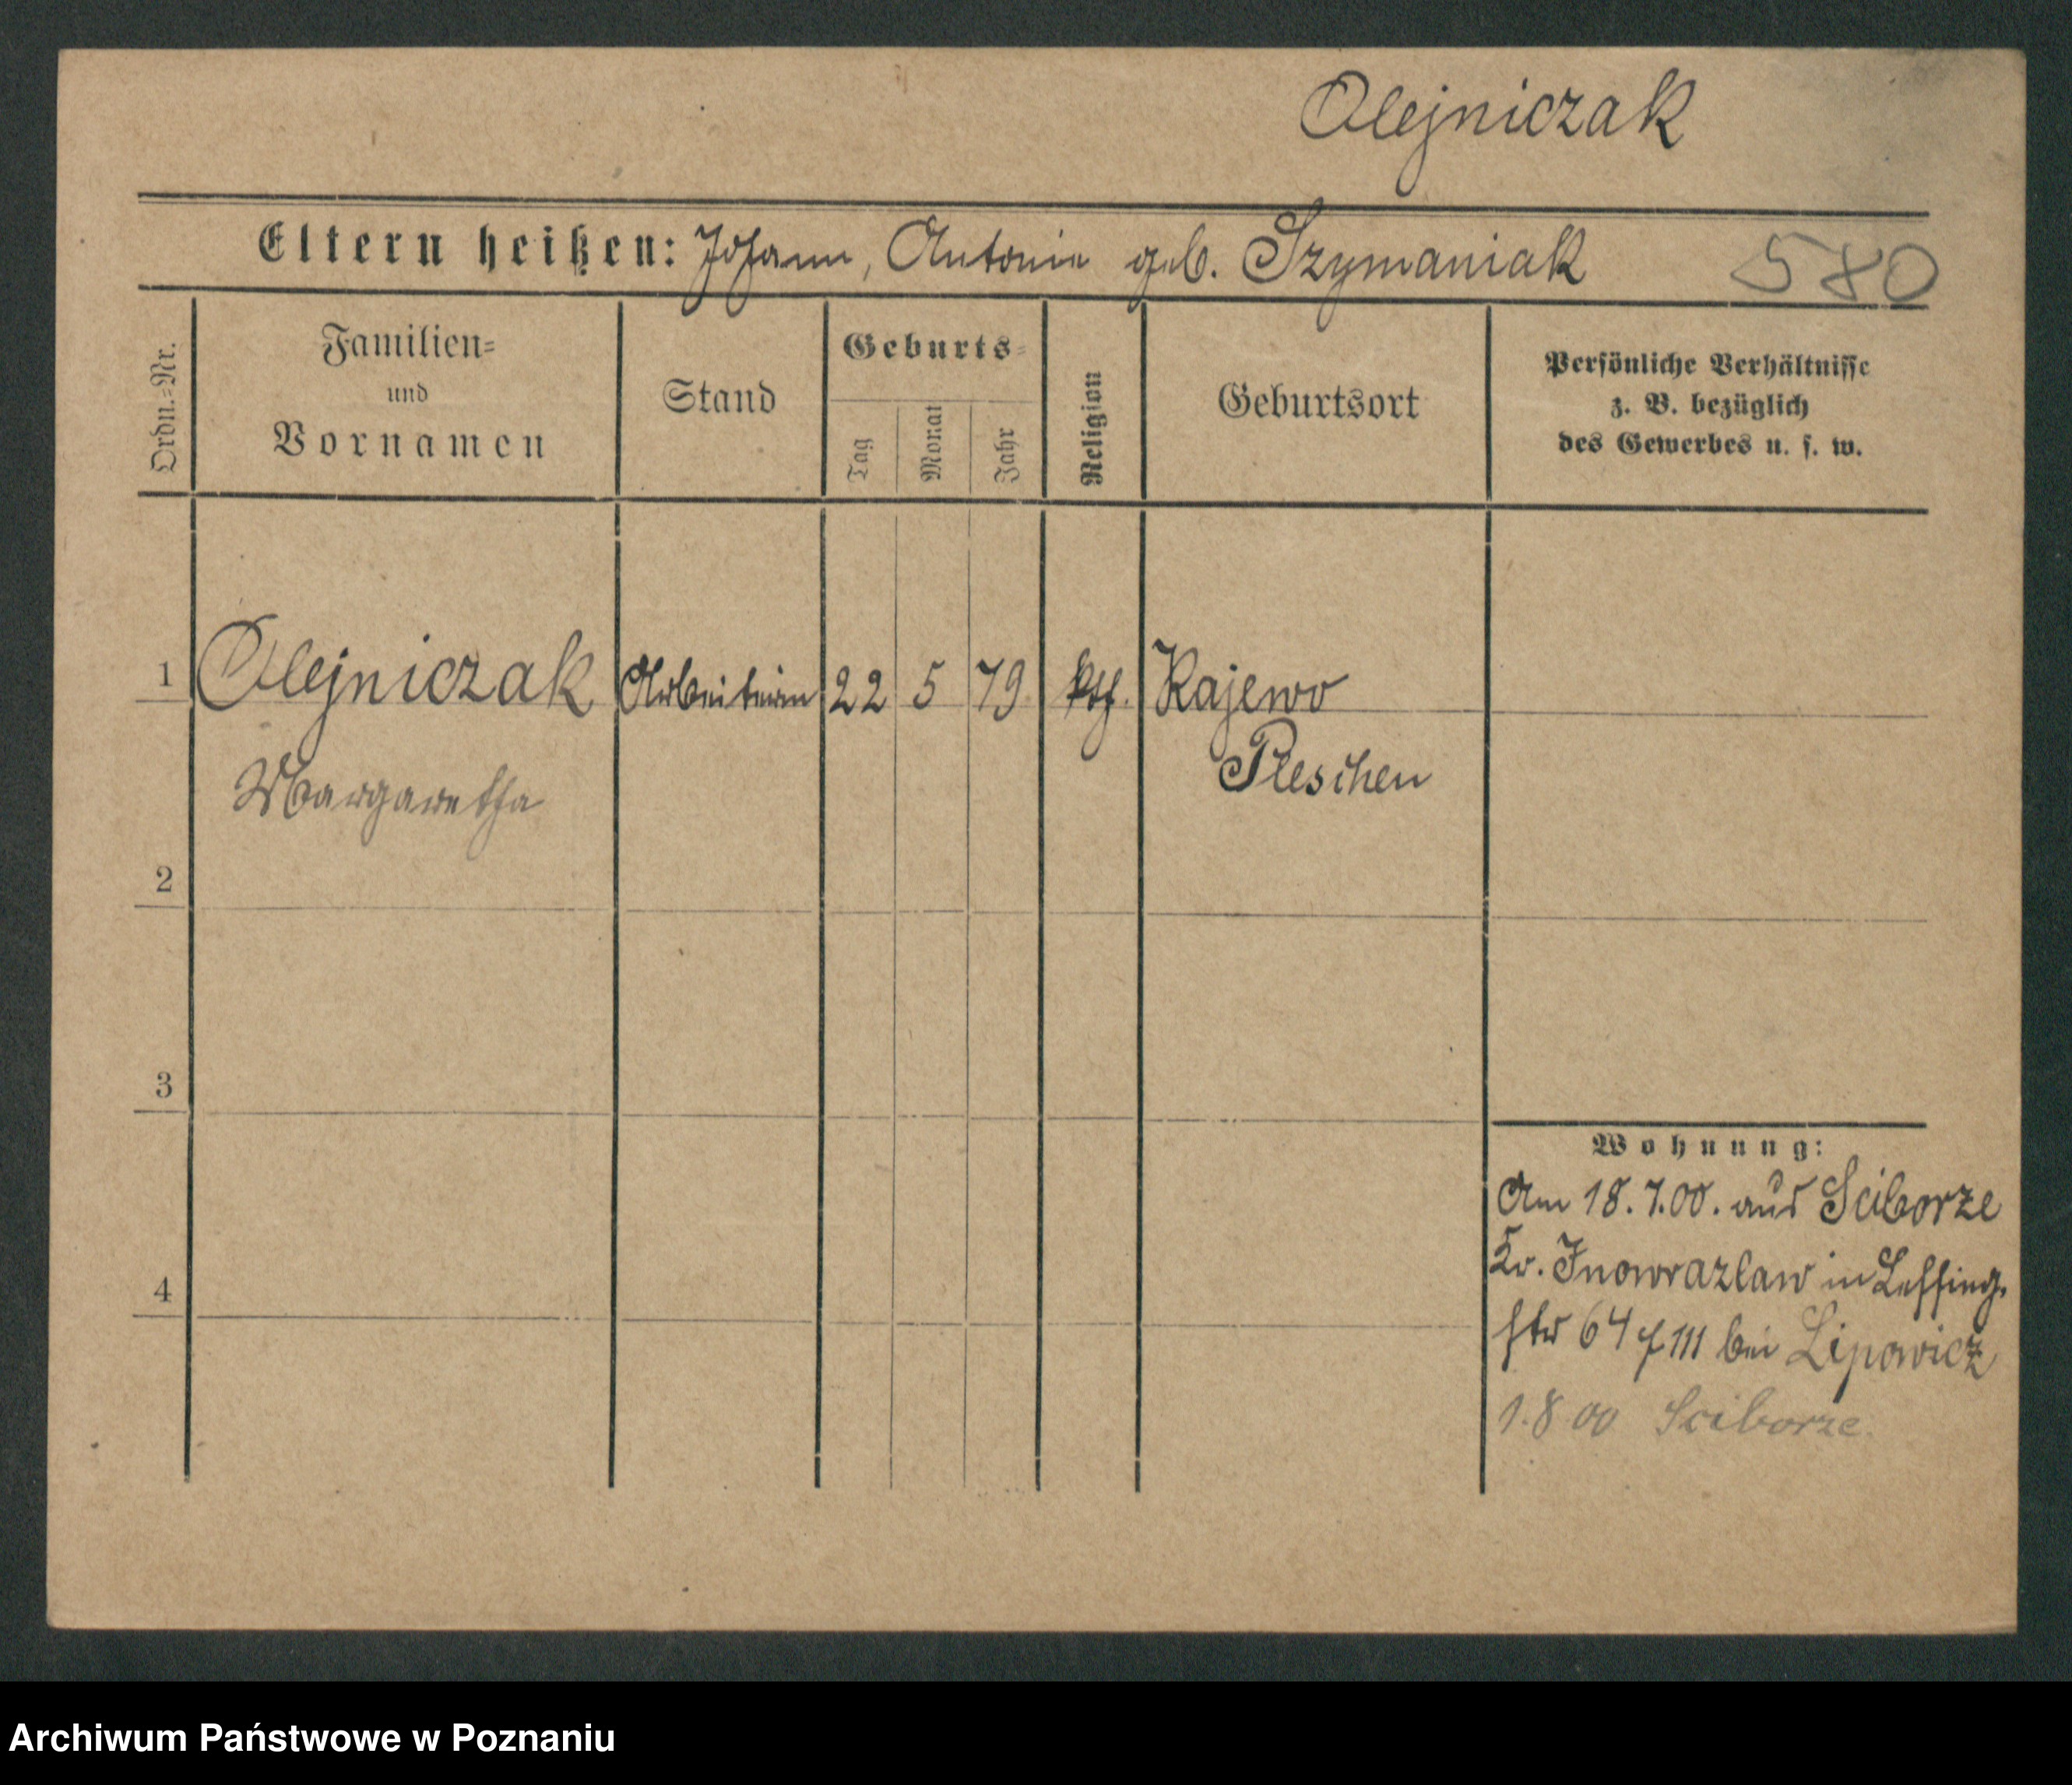 Olejniczak
Eltern heißen: Johann, Antonie geb. Szymaniak 580
Ordn.=Nr.
Familien=
und
Vornamen
Stand
Geburts=
Tag
Monat
Jahr
Religion
Geburtsort
Persönliche Verhältnisse
z. B. bezüglich
des Gewerbes u. s. w.
1 Olejniczak Arbeiterin 22 5 79 kth. Rajewo
Margaretha Pleschen
2
3
4
Wohnung:
Am 18.7.00. aus Sciborze
Kr. Inowrazlaw in Lessing-
str 64 III bei Lipowicz
1.8 00 Sciborze
Archiwum Państwowe w Poznaniu